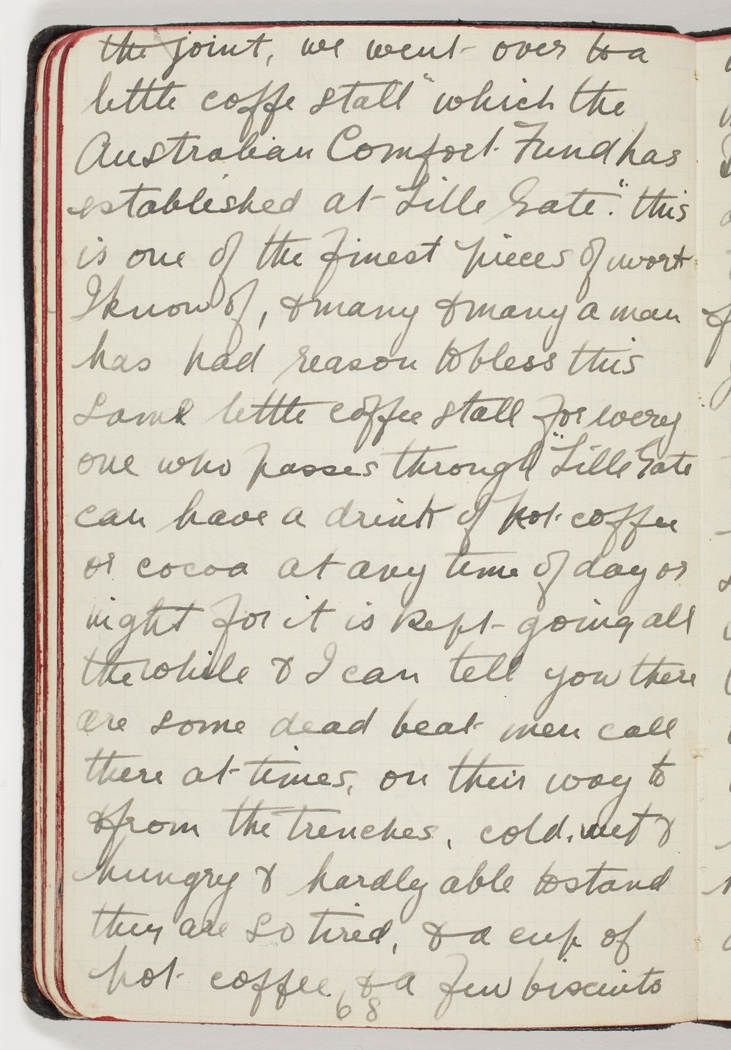 the joint, we went over to a
little coffe stall" which the
Australian Comfort Fund has
established at Lille Gate." this
is one of the finest pieces of work
I know of, & many & many a man
has had reason to bless this
same little coffee stall for every
one who passes through "Lille Gate
can have a drink of hot coffee
or cocoa at any time of day or
night for it is kept going all
the while & I can tell you there
are some dead beat men call
there at times, on their way to
& from the trenches, cold, wet &
hungry & hardly able to stand
they are so tired, & a cup of
hot coffee & a few biscuits
68